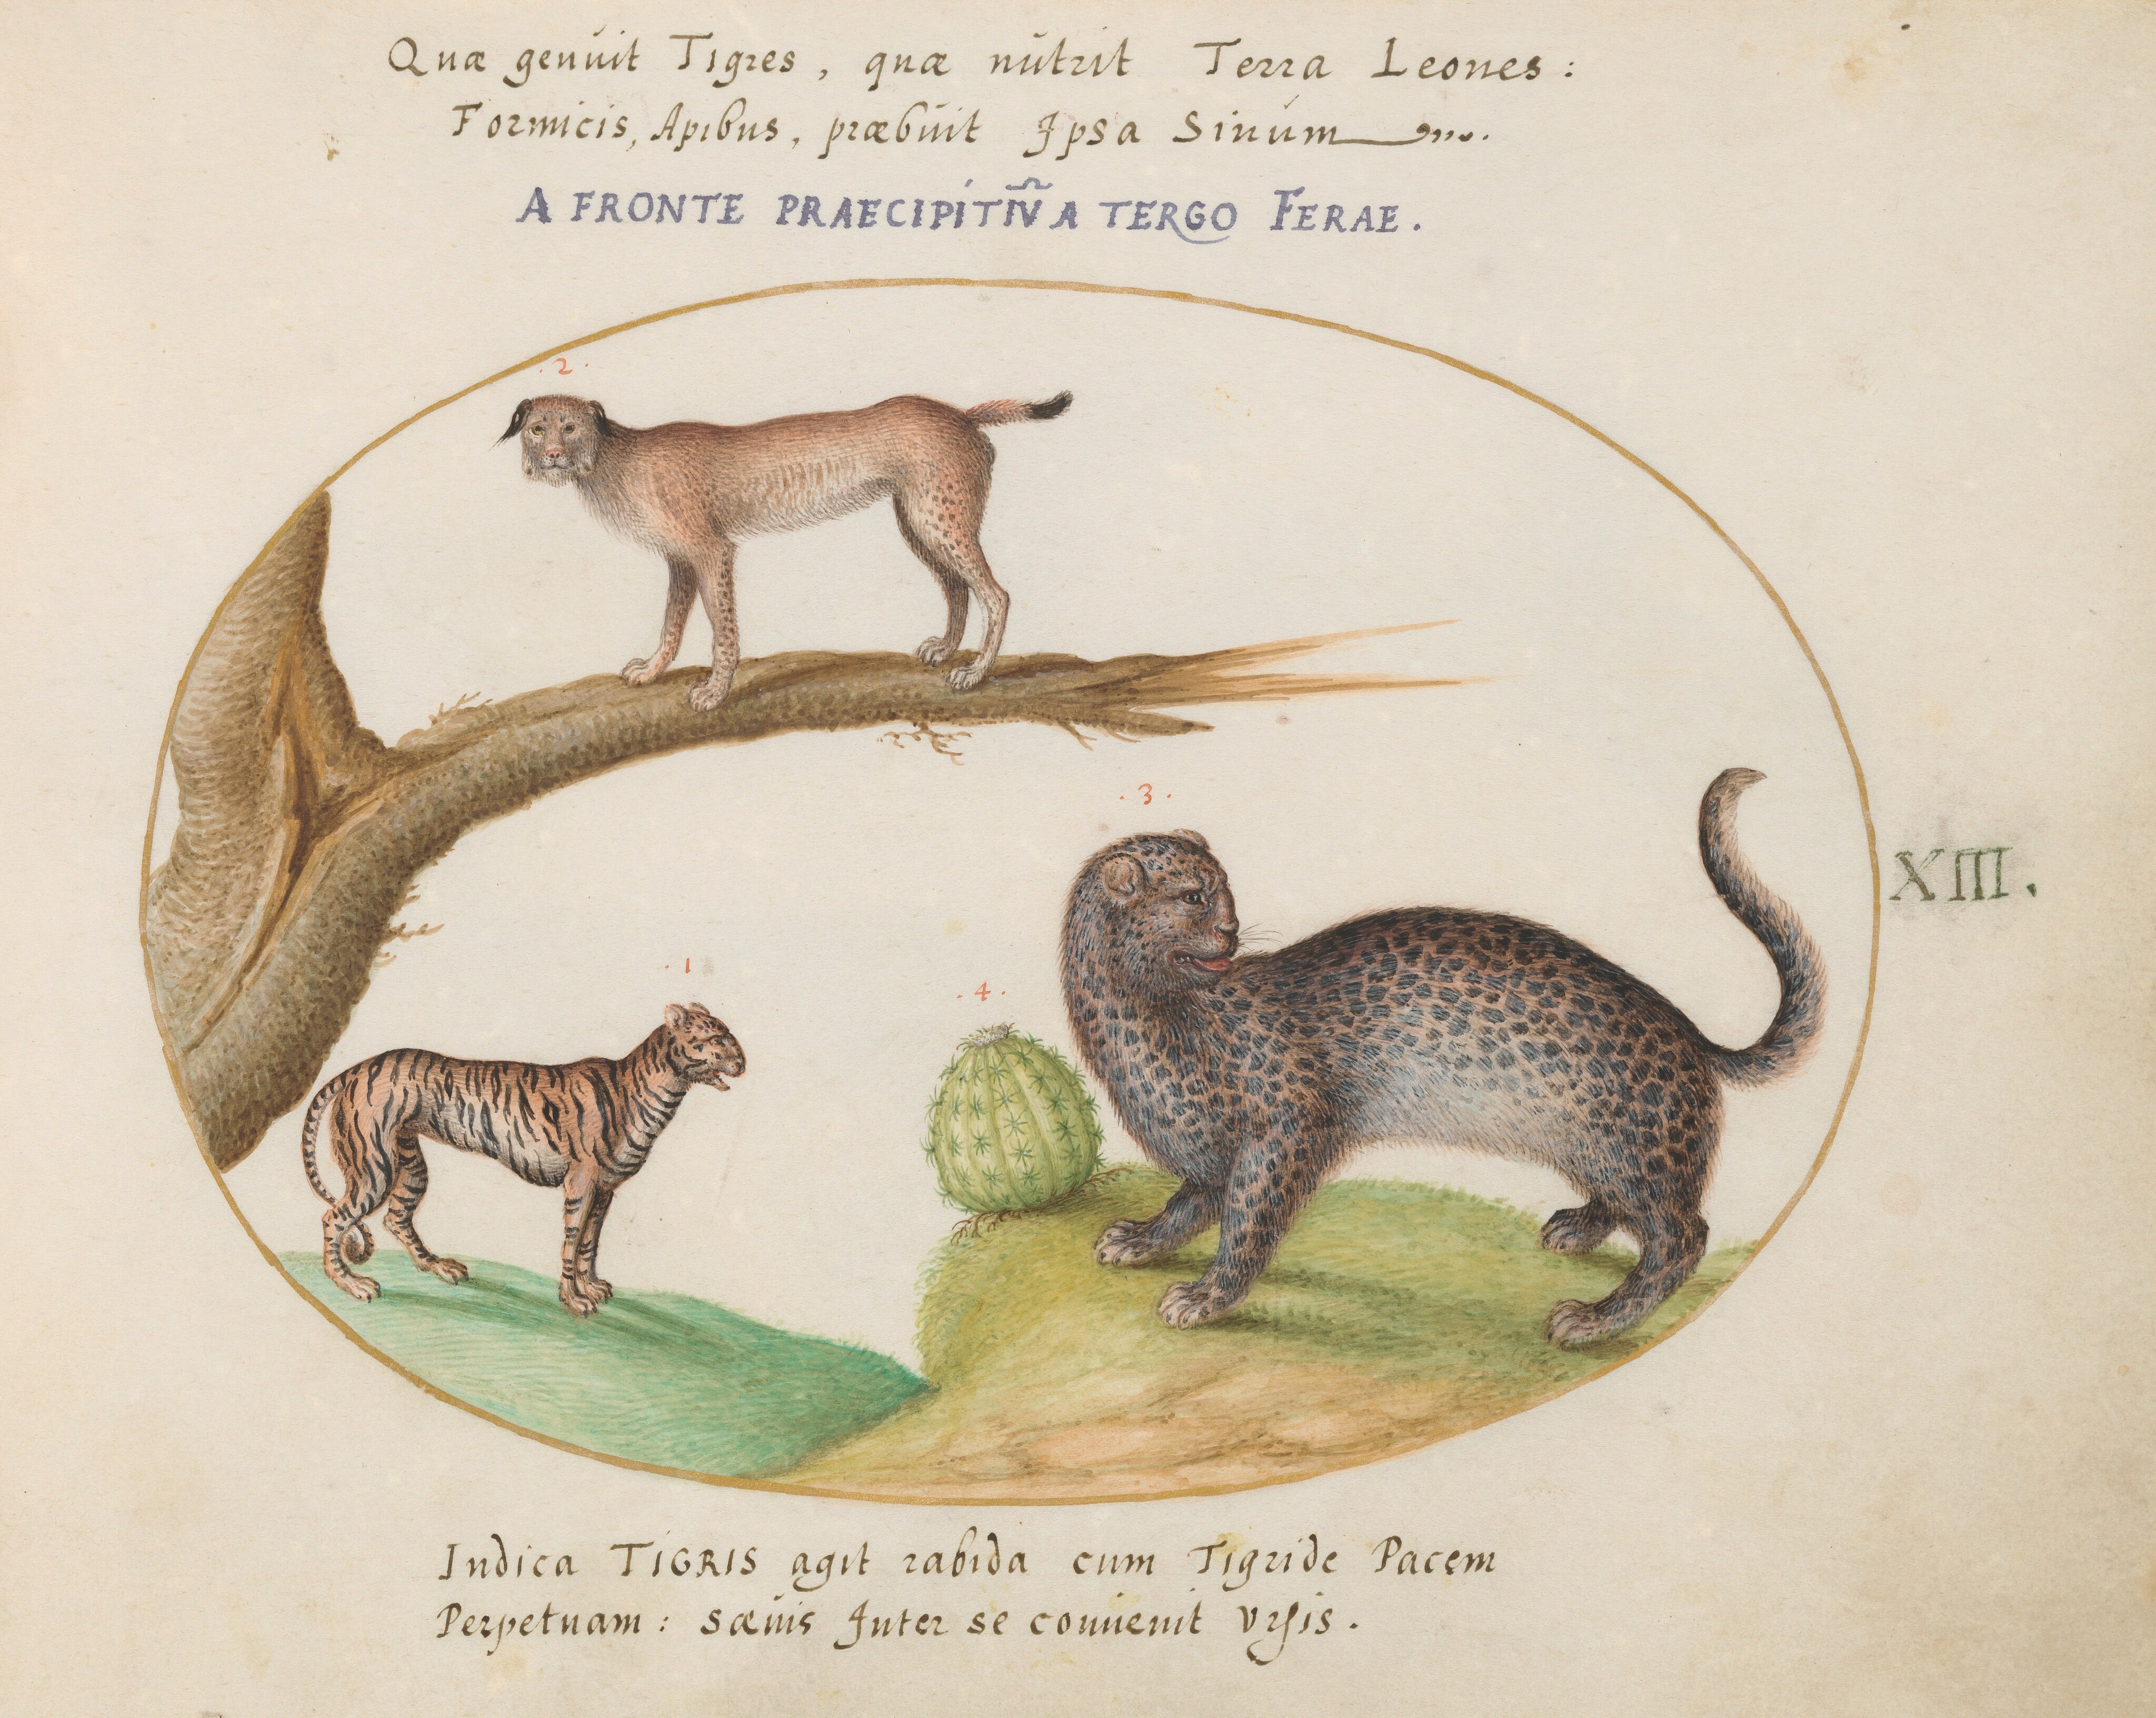 Quæ genuit Tigres, quæ nutrit Terra Leones:
Formicis, Apibus, præbuit Ipsa Sinum
A FRONTE PRAECIPITIṼ A TERGO FERAE.
.2.
.3.
XIII.
.1
.4.
Indica TIGRIS agit rabida cum Tigride Pacem
Perpetuam: sæuis Inter se conuenit Vrsis.